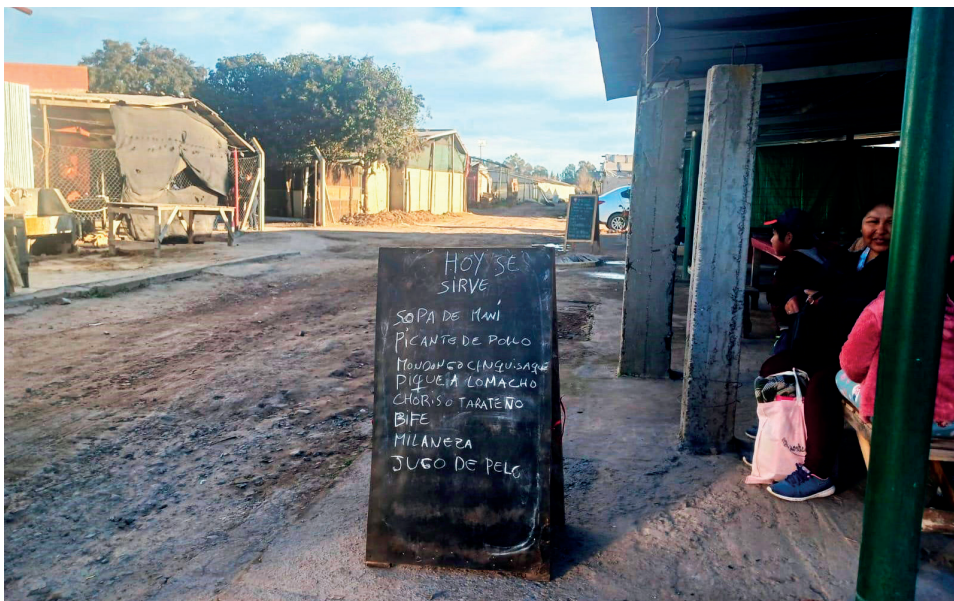 HOY SE
SIRVE
SOPA DE MANÍ
PICANTE DE POLLO
MONDONGO CINQUISAQUE
PIQUE A LO MACHO
CHORISO TARATEÑO
BIFE
MILANEZA
JUGO DE PELE